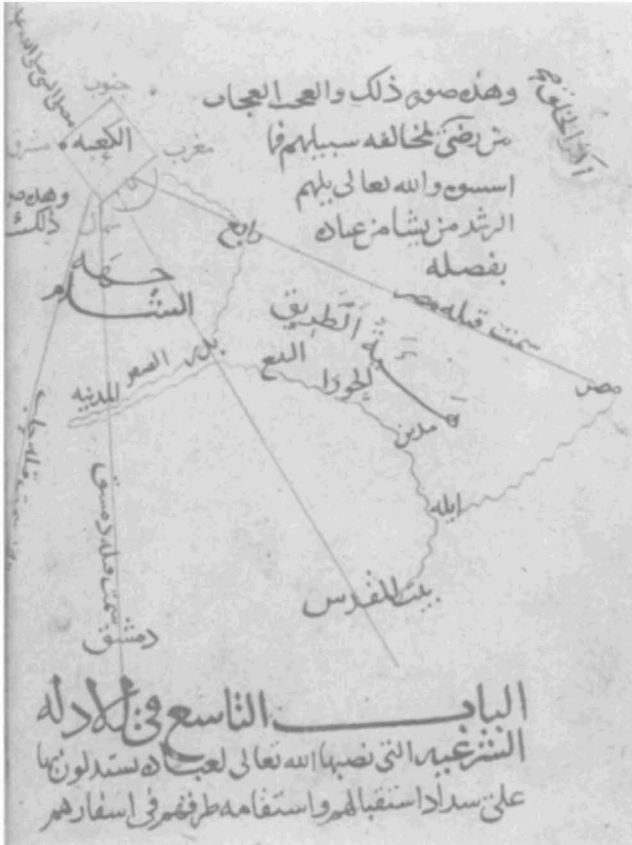 وهذه صوره ذلك والعجب العجاب
من رضى بمخالفه سبيلهم فما
اسسوه والله تعالى يلهم
الرشد من يشا من عباده
بفضله
جنوب
الكعبه
مغرب
مشرق
وهذه
ذلك
شمال
جهه
الشام
رابغ
سمت قبله مصر
مصر
الطريق
بدر
الصفر
المدينه
الينبع
الحورا
مدين
ايله
بيت المقدس
سمت قبله دمشق
دمشق
الباب التاسع في الادله
الشرعيه التى نصبها الله تعالى لعباده يستدلون بها
على سداد استقبالهم واستقامه طرقهم فى اسفارهم